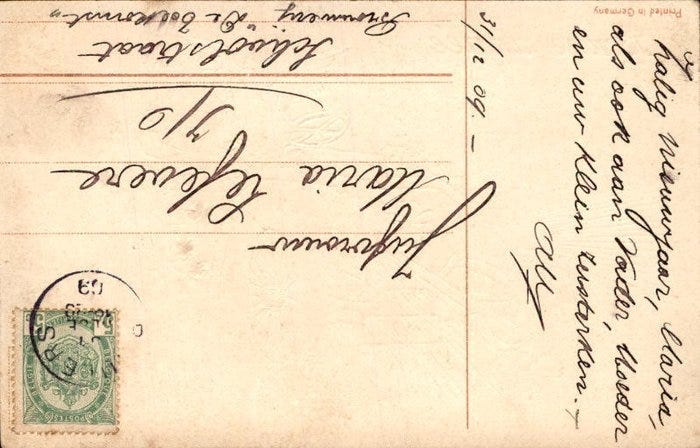 Zalig Nieuwjaar, Maria,
als ook aan Vader, Moeder
en uw klein zusterken. –
31/12 09. –
Jufvrouw
Maria Lefevere
Schoolstraat
Brouwery "De Toekomst"
Printed in Germany
POSTES
09